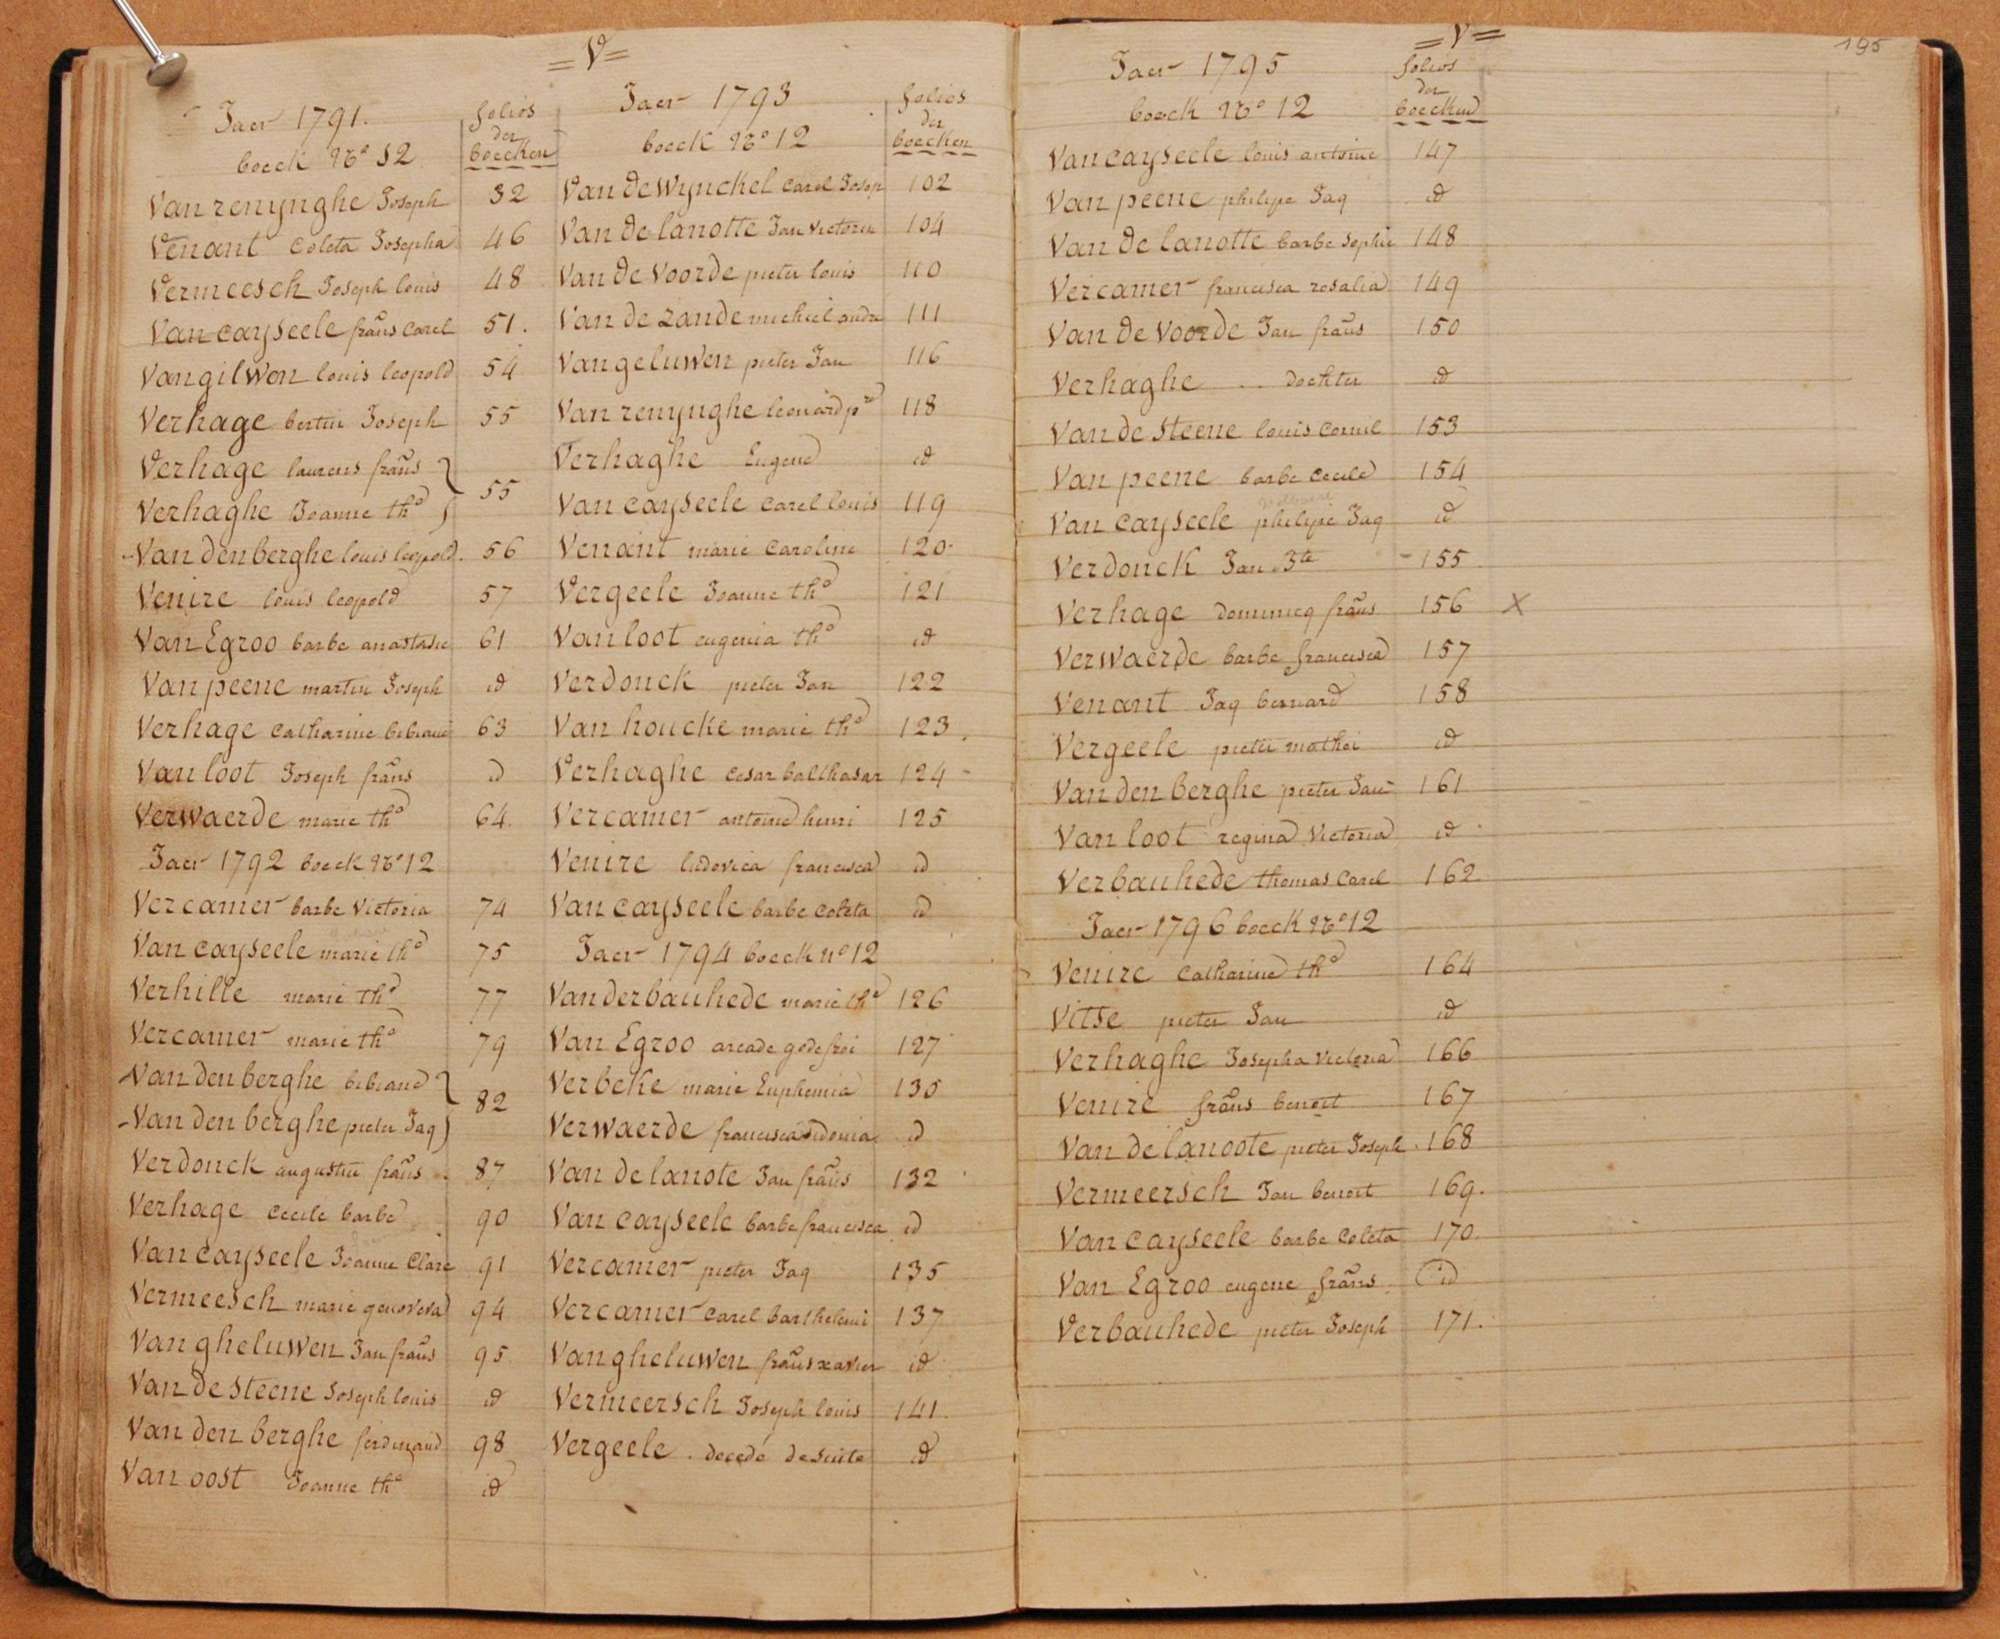 = V =
Jaer 1791.
boeck No 12
folios
der
boecken
Van renynghe Joseph 32
Venant Coleta Josepha 46
Vermeesch Joseph louis 48
Van cayseele frans Carel 51.
Van gilwen louis leopold 54
Verhage bertin Joseph 55
Verhage laurens frans
Verhaghe Joanne the 55
Van den berghe louis leopold. 56
Venire louis leopold 57
Van Egroo barbe anastasie 61
Van peene martin Joseph id
Verhage Catharine bibiane 63
Van loot Joseph frans id
Verwaerde marie the 64
Jaer 1792 boeck No 12
Vercamer barbe Victoria 74
Van cayseele marie the 75
Verhille marie the 77
Vercamer marie the 79
Van den berghe bibiane
Van den berghe pieter Jaq 82
Verdonck augustin frans 87
Verhage Cecile barbe 90
Van cayseele Joanne Clare 91
Vermeesch marie genoveva 94
Van gheluwen Jan frans 95
Van de steene Joseph louis id
Van den berghe ferdinand 98
Van oost Joanne the id
Jaer 1793
boeck No 12
folios
der
boecken
Van de Wynckel Carel Josep 102
Van de lanotte Jan Victorin 104
Van de Voorde pieter louis 110
Van de zande michiel andre 111
Van geluwen pieter Jan 116
Van renynghe leonard pre 118
Verhaghe Eugene id
Van cayseele Carel louis 119
Venant marie Caroline 120
Vergeele Joanne the 121
Van loot eugenia the id
Verdonck pieter Jan 122
Van houcke marie the 123
Verhaghe Cesar balthasar 124
Vercamer antoine henri 125
Venire ludovica francisca id
Van cayseele barbe Coleta id
Jaer 1794 boeck no 12
Van derbauhede marie the 126
Van Egroo arcade godefroi 127
Verbeke marie Euphemia 130
Verwaerde francisca sidonia id
Van de lanote Jan frans 132
Van cayseele barbe francisca id
Vercamer pieter Jaq 135
Vercamer Carel barthelemi 137
Van gheluwen frans xavier id
Vermeersch Joseph louis 141
Vergeele . decedé desuite id
= V =
195
Jaer 1795
boeck No 12
folios
der
boecken
Van cayseele louis antoine 147
Van peene philipe Jaq id
Van de lanotte barbe Sophie 148
Vercamer francisca rosalia 149
Van de Voorde Jan frans 150
Verhaghe . . dochter id
Van de steene louis Cornil 153
Van peene barbe Cecile 154
Van cayseele philipe Jaq id
Verdonck Jan Bte 155
Verhage dominicq frans 156 X
Verwaerde barbe francisca 157
Venant Jaq bernard 158
Vergeele pieter mathei id
Van den berghe pieter Jan 161
Van loot regina Victoria id
Verbauhede thomas Carel 162
Jaer 1796 boeck No 12
Venire Catharine the 164
Vitse pieter Jan id
Verhaghe Josepha Victoria 166
Venire frans benoit 167
Van de lanoote pieter Joseph 168
Vermeersch Jan benoit 169.
Van cayseele barbe Coleta 170
Van Egroo eugene frans id
Verbauhede pieter Joseph 171.